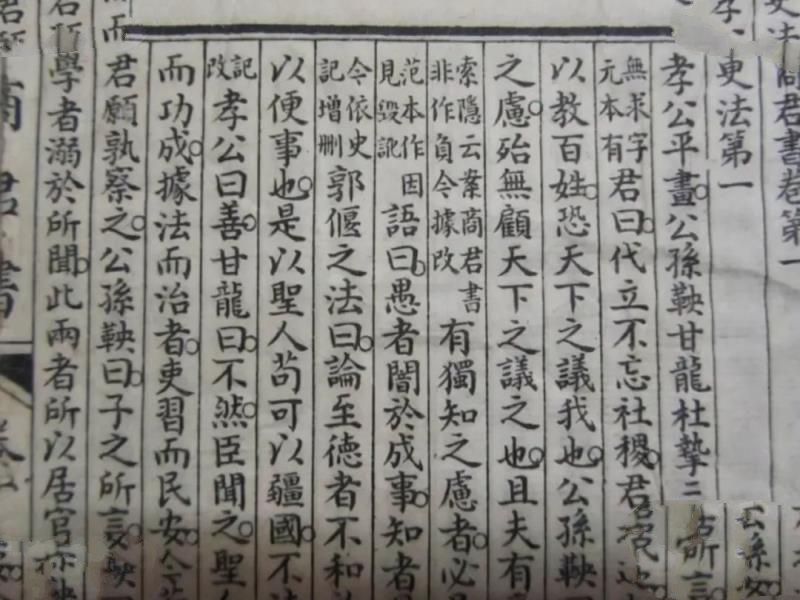 商君書卷第一
更法第一
孝公平畫公孫鞅甘龍杜摯
無求字元本有君曰代立不忘社稷君
以教百姓恐天下之議我也公孫鞅
之慮殆無顧天下之議之也且夫有
索隱云案商君書非作負今據改有獨知之慮者必
范本作因見毀訛語曰愚者闇於成事知者
今依史記增刪郭偃之法曰論至德者不和
以便事也是以聖人苟可以疆國不
記改孝公曰善甘龍曰不然臣聞之聖
而功成據法而治者吏習而民安今
而君願孰察之公孫鞅曰子之所言
學者溺於所聞此兩者所以居官
商君書